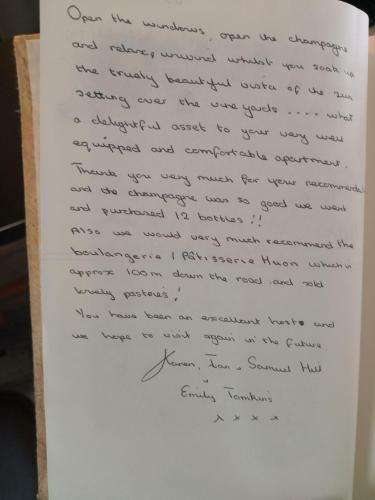 Open the windows, open the champagne
and relax, unwind whilst you soak up
the truely beautiful vista of the sun
setting over the vineyards .... what
a delightful asset to your very well
equipped and comfortable apartment.
Thank you very much for your recommendat
and the champagne was so good we went
and purchased 12 bottles!!
Also we would very much recommend the
boulangerie / Pâtisserie Huon which is
approx 100m down the road and sold
lovely pastries!
You have been an excellent host and
we hope to visit again in the future.
Karen, Ian, Samuel Hill
Emily Tomkins
x x x x